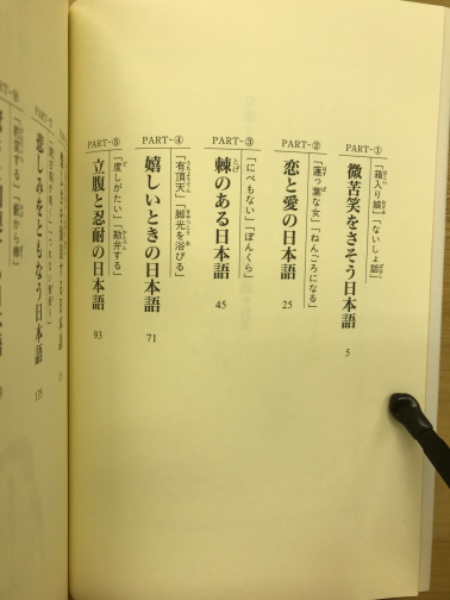 PART-①
「箱入り娘」「ないしょ話」
微苦笑をさそう日本語
5
PART-②
「蓮っ葉な女」「ねんごろになる」
恋と愛の日本語
25
PART-③
「にべもない」「ぼんくら」
棘のある日本語
45
PART-④
「有頂天」「脚光を浴びる」
嬉しいときの日本語
71
PART-⑤
「度しがたい」「勘弁する」
立腹と忍耐の日本語
93
悲しみをともなう日本語
135